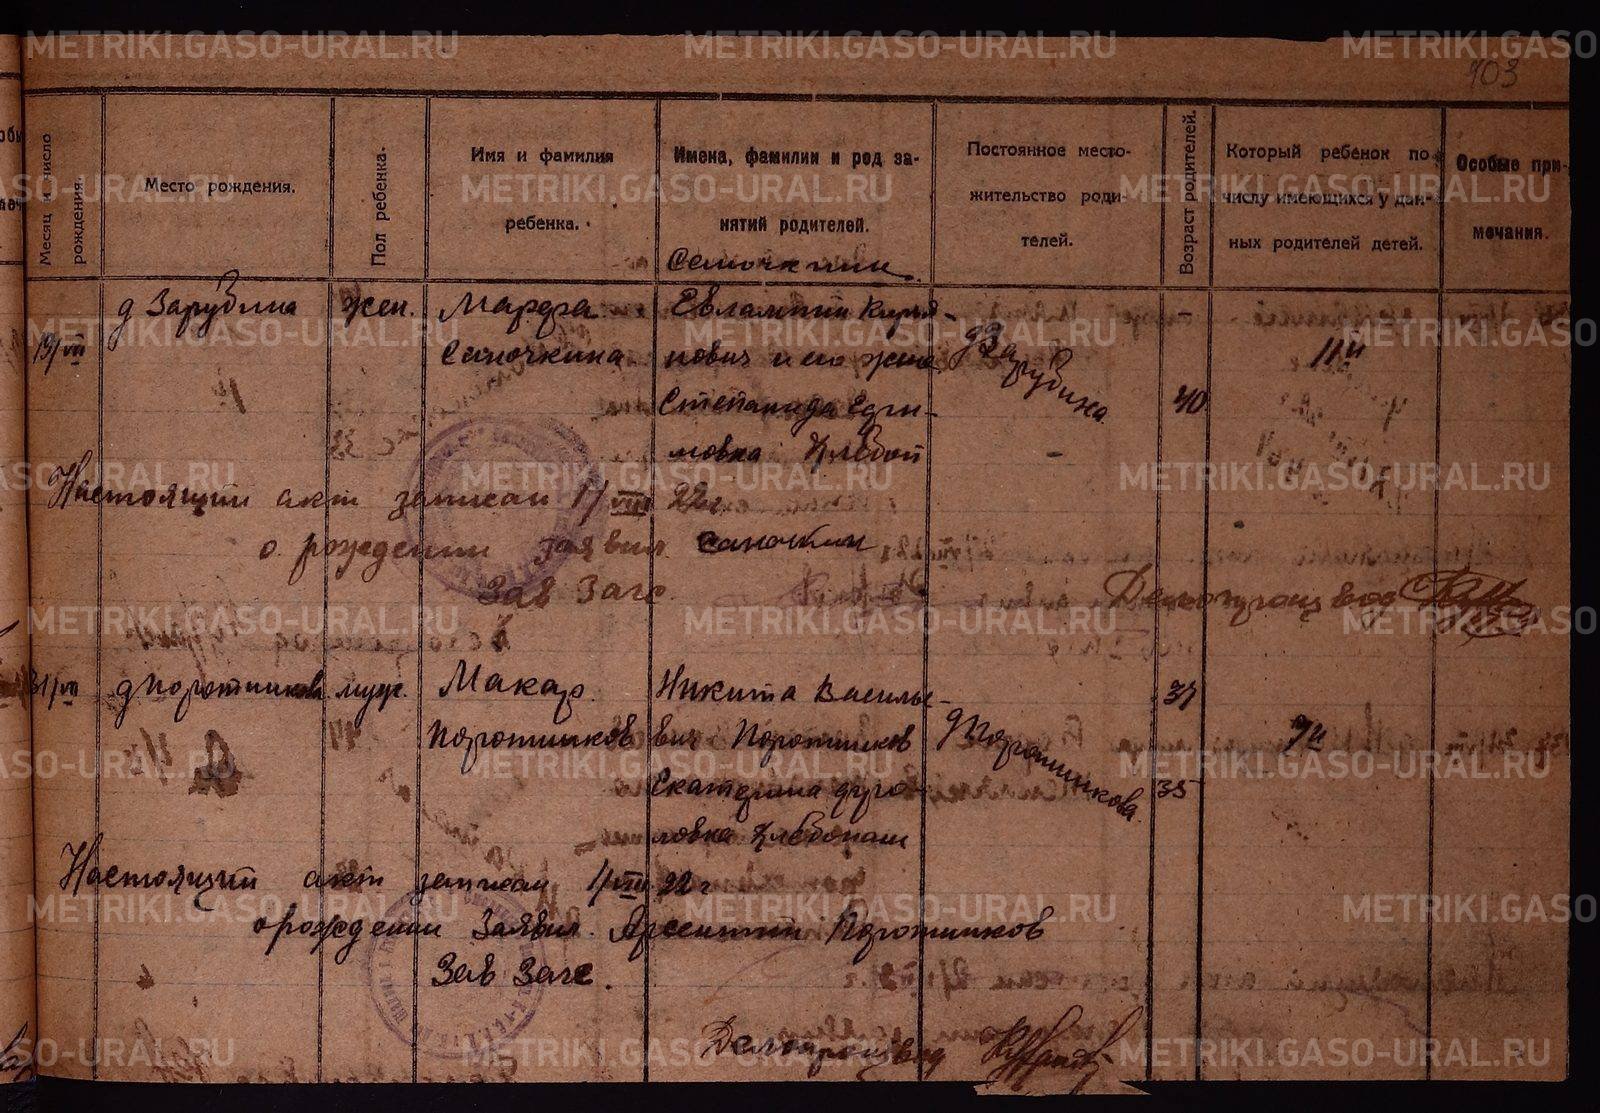 103
Месяц и число рождения.
Место рождения.
Пол ребенка.
Имя и фамилия
ребенка.
Имена, фамилии и род за-
нятий родителей.
Постоянное место-
жительство роди-
телей.
Возраст родителей.
Который ребенок по
числу имеющихся у дан-
ных родителей детей.
Особые при-
мечания.
19/VII
д Зарубина
жен.
Марфа
Саночкина
Евлампий Кирья-
нович и его жена
Степанида
мовна Хлебоп
д Зарубина
40
11й
Настоящий акт записан 1/VIII 22г
о рождении заявил Саночкин
Зав Загс
Делопроизвод
31/VII
д Поротникова
муж.
Макар
Поротников
Никита Василье-
вич Поротников
Екатерина
ловна Хлебопаш
д Поротникова
37
35
7й
Настоящий акт записан 1/VIII 22 г
о рождении Заявил Арсентий Поротников
Зав Загс.
Делопроизвод
METRIKI.GASO-URAL.RU